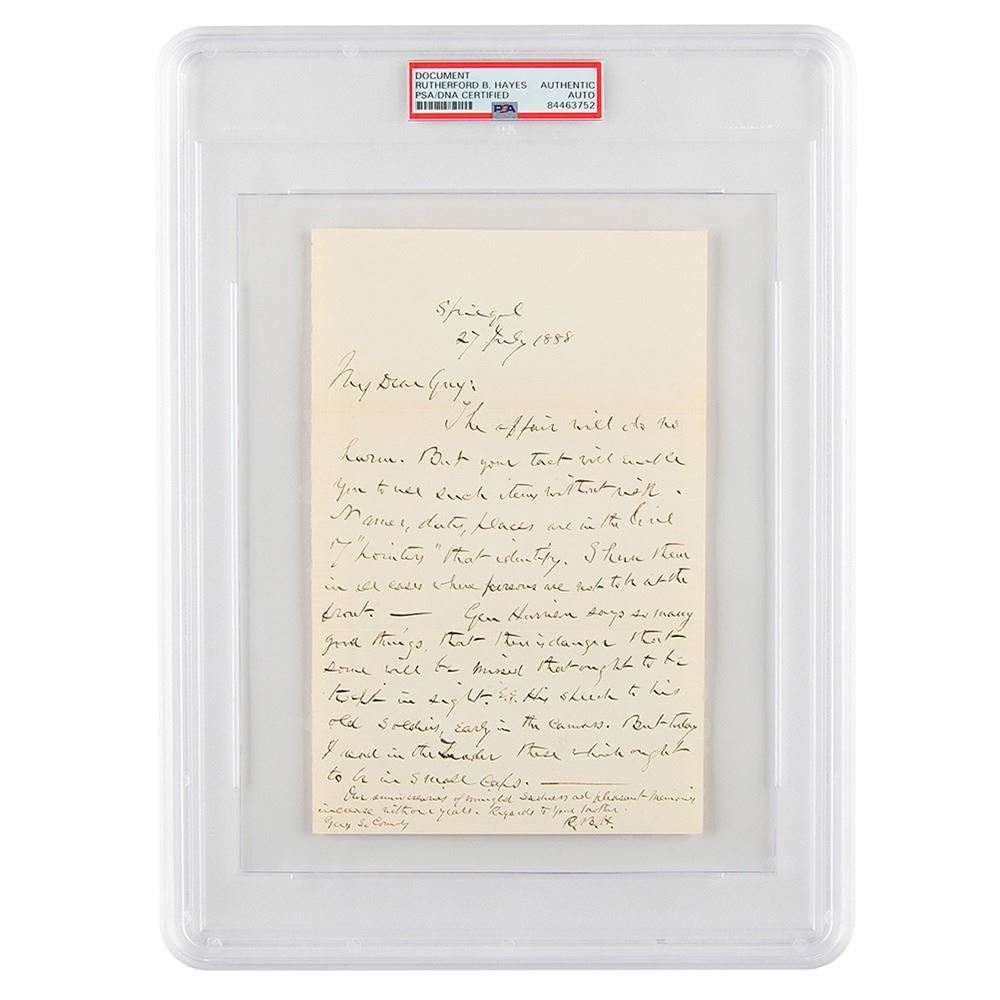 DOCUMENT
RUTHERFORD B. HAYES AUTHENTIC
PSA/DNA CERTIFIED AUTO
PSA 84463752
Spiegel
27 July 1888
My Dear Guy:
The affair will do no
harm. But your tact will enable
you to use such items without risk.
Names, dates, places are in the line
of "pointers" that identify. I shun them
in all cases where persons are not to be at the
front. — Gen Harrison says so many
good things, that there is danger that
some will be missed that ought to be
kept in sight. E.g. His speech to his
old soldiers, early in the canvass. But today
I read in the Leader these which ought
to be in small caps. —
Our anniversaries of mingled sadness and pleasant memories
increase with our years. Regards to your mother.
R.B.H.
Guy S. Comly